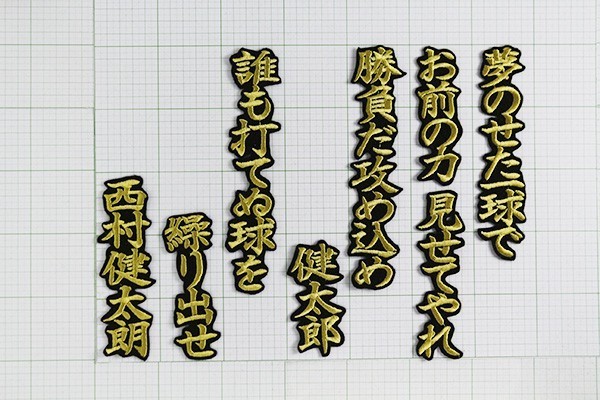 夢のせた一球で
お前の力 見せてやれ
勝負だ攻め込め
健太郎
誰も打てぬ球を
繰り出せ
西村健太朗